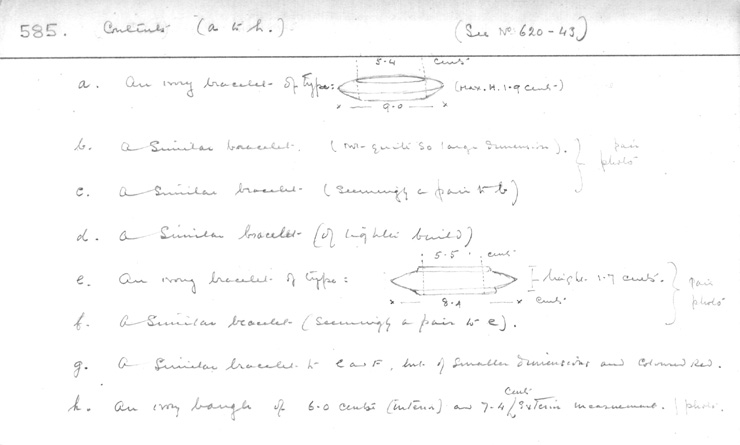 585. Contents (a to h.) (See No 620-43)
5.4 cents
a. An ivory bracelet of type: (Max. H. 1.9 cent.)
x — 9.0 — x
b. A Similar bracelet. (not quite so large dimension). pair
photo
c. A Similar bracelet (Seemingly a pair to b)
d. A Similar bracelet (of lighter build)
5.5 cent
e. An ivory bracelet of type: height 1.7 cents. pair
x — 8.4 — x cents photo
f. A Similar bracelet (Seemingly a pair to e).
g. A Similar bracelet to E and F, but of Smaller dimensions and coloured Red.
cent
h. An ivory bangle of 6.0 cents (interior) and 7.4 / Exterior measurement. photo.